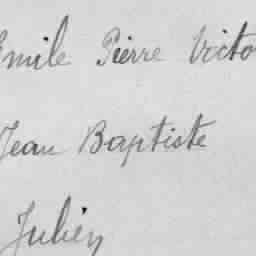 Emile Pierre Victo
Jean Baptiste
Julien